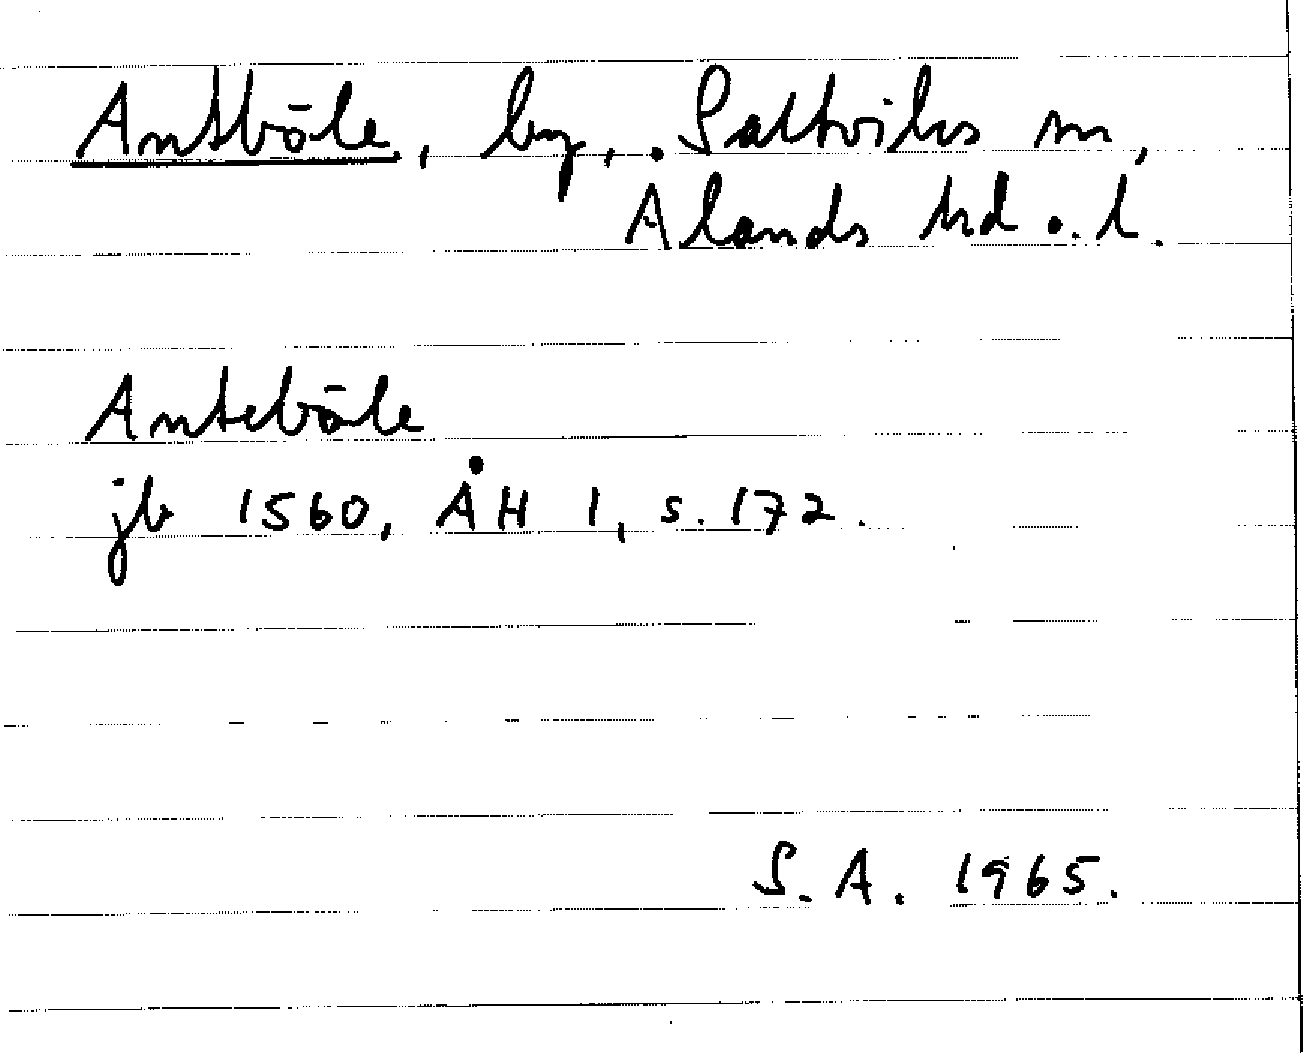 Antböle, by, Saltviks sn,
Alands hd o. l.
Anteböle
jb 1560, ÅH 1, s. 172.
S. A. 1965.